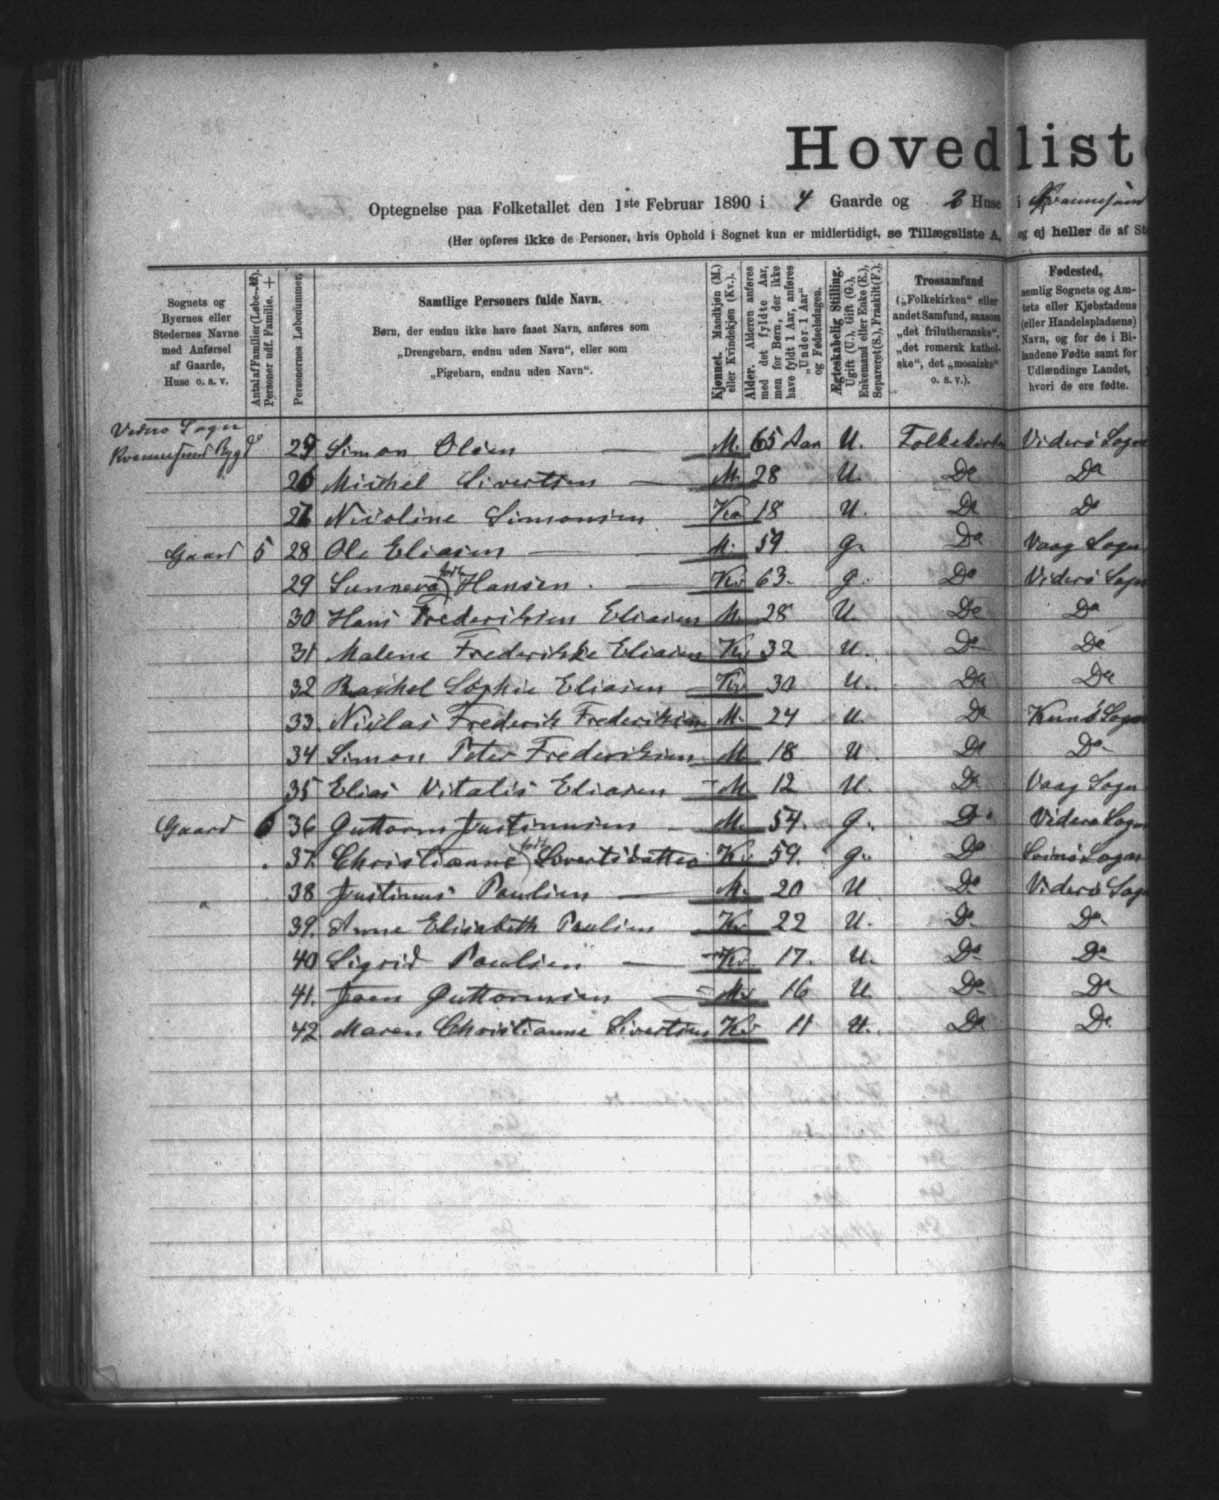 Hovedliste
Optegnelse paa Folketallet den 1ste Februar 1890 i 4 Gaarde og 2 Huse i Kvannesund
(Her opføres ikke de Personer, hvis Ophold i Sognet kun er midlertidigt, se Tillægsliste A, og ej heller de af
Sognets og Byernes eller Stedernes Navne med Anførsel af Gaarde, Huse o. s. v.
Antal af Familier (Løbe-№). Personer udf. Familie. +
Personernes Løbenummer.
Samtlige Personers fulde Navn.
Børn, der endnu ikke have faaet Navn, anføres som
„Drengebarn, endnu uden Navn“, eller som
„Pigebarn, endnu uden Navn“.
Kjønnet. Mandkjøn (M.) eller Kvindekjøn (Kv.).
Alder. Alderen anføres med det fyldte Aar, men for Børn, der ikke have fyldt 1 Aar, anføres „Under 1 Aar“ og Fødselsdagen.
Ægteskabelig Stilling. Ugift (U.), Gift (G.), Enkemand eller Enke (E.), Separeret (S.), Fraskilt (F.).
Trossamfund („Folkekirken“ eller andet Samfund, saasom „det frilutheranske“, „det romersk katholske“, det „mosaiske“ o. s. v.).
Fødested, nemlig Sognets og Amtets eller Kjøbstadens (eller Handelspladsens) Navn, og for de i Bilandene Fødte samt for Udlændinge Landet, hvori de ere fødte.
Viderø Sogn
Kvannesund Bygd 25 Simon Olsen M. 65 Aar U. Folkekirken Viderø Sogn
26 Michel Sivertsen M. 28 U. Do Do
27 Nicoline Simonsen Kv 18 U. Do Do
Gaard 5 28 Ole Eliasen M. 59 G. Do Vaag Sogn
29 Sunneva født Hansen Kv 63. g. Do Viderø Sogn
30 Hans Frederiksen Eliasen M. 28 U. Do Do
31 Malene Frederikke Eliasen Kv 32 U. Do Do
32 Rachel Sophie Eliasen Kv 30 U. Do Do
33. Niclas Frederik Frederiksen M. 24 U. Do Kunø Sogn
34 Simon Peter Frederiksen M 18 U Do Do
35 Elias Vitalis Eliasen M 12 U. Do Vaag Sogn
Gaard 6 36 Guttorm Justinussen M. 54. g. Do Viderø Sogn
37. Christianne født Sivertsdatter Kv 59. g. Do Sogn
38 Justinus Poulsen M. 20 U Do Viderø Sogn
39. Anne Elisabeth Poulsen Kv 22 U. Do Do
40 Sigrid Poulsen Kv. 17. U. Do Do
41. Joen Guttormsen M. 16 U. Do Do
42 Maren Christianne Sivertsen Kv 11 U. Do Do